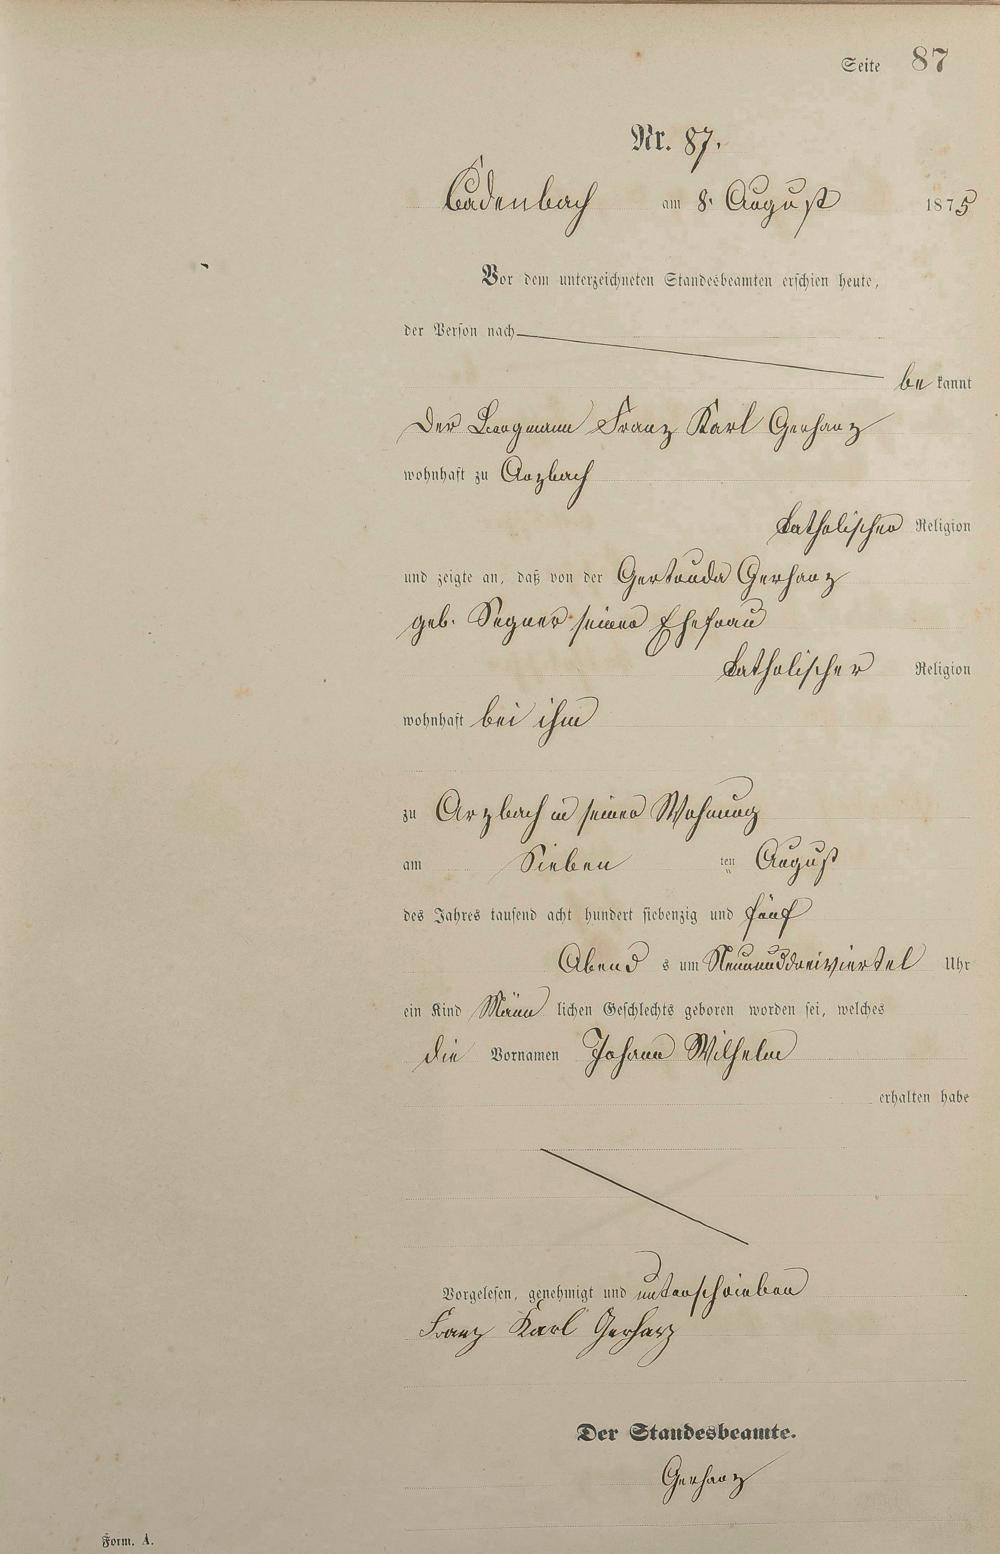 Seite 87
Nr. 87.
Cadenbach am 8. August 1875
Vor dem unterzeichneten Standesbeamten erschien heute,
der Person nach
be kannt
Der Bergmann Franz Karl Gerharz
wohnhaft zu Arzbach
katholischer Religion
und zeigte an, daß von der Gertruda Gerharz
geb. Segner seiner Ehefrau
katholischer Religion
wohnhaft bei ihm
zu Arzbach in seiner Wohnung
am Sieben ten August
des Jahres tausend acht hundert siebenzig und fünf
Abend s um Neununddreiviertel Uhr
ein Kind Männ lichen Geschlechts geboren worden sei, welches
die Vornamen Johann Wilhelm
erhalten habe
Vorgelesen, genehmigt und unterschrieben
Franz Karl Gerharz
Der Standesbeamte.
Gerharz
Form. A.